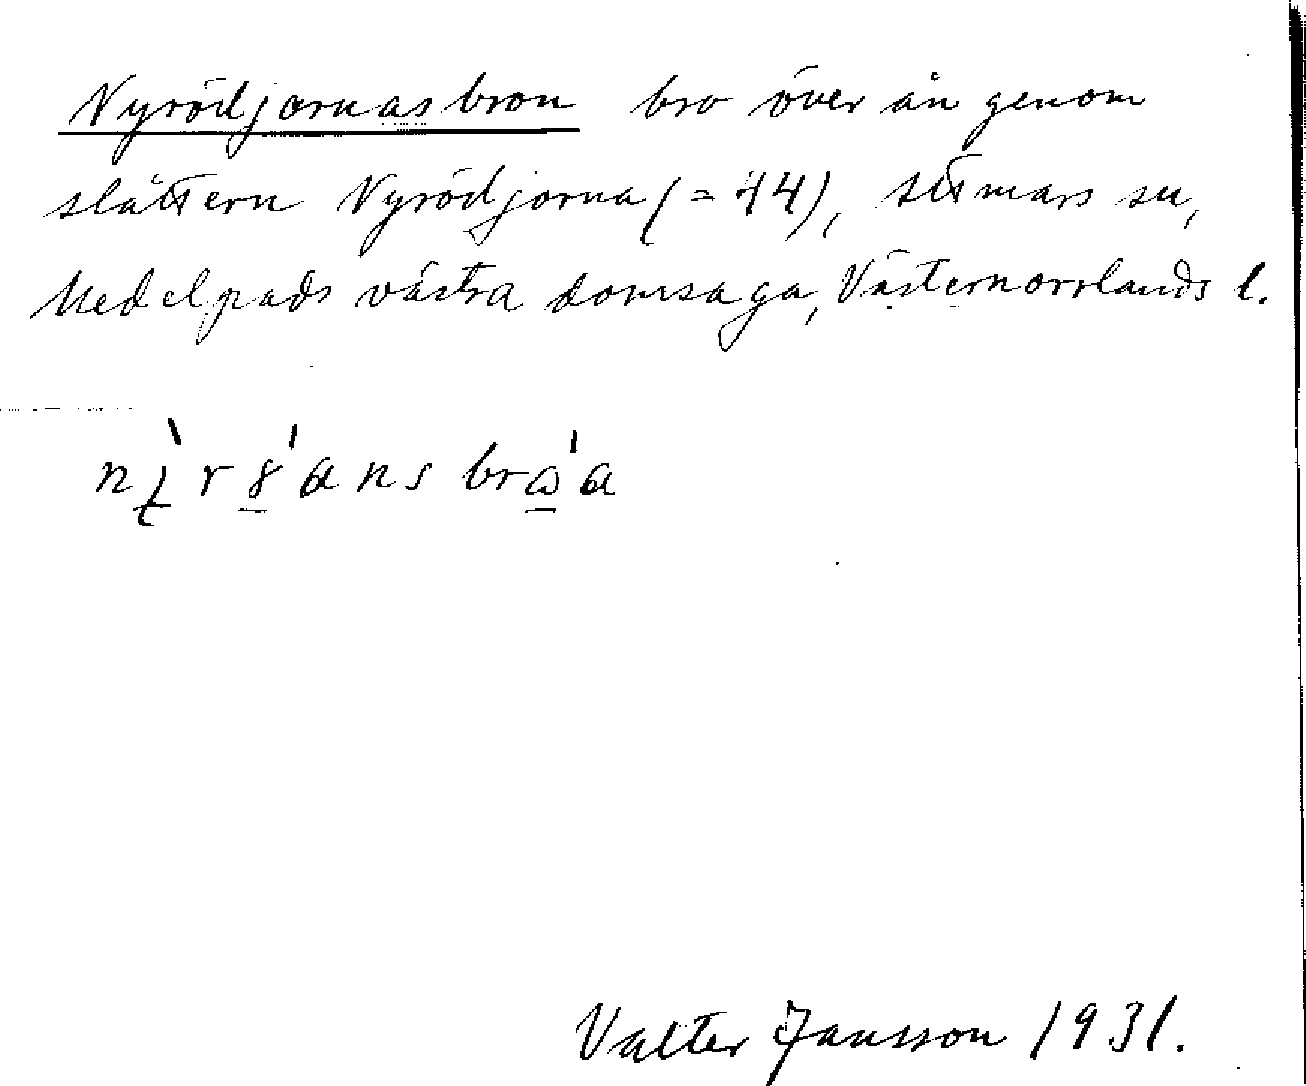 Nyrödjornas bron bro över ån genom
slåttern Nyrödjorna (= 44), Attmars sn,
Medelpads västra domsaga, Västernorrlands l.
Valter Jansson 1931.